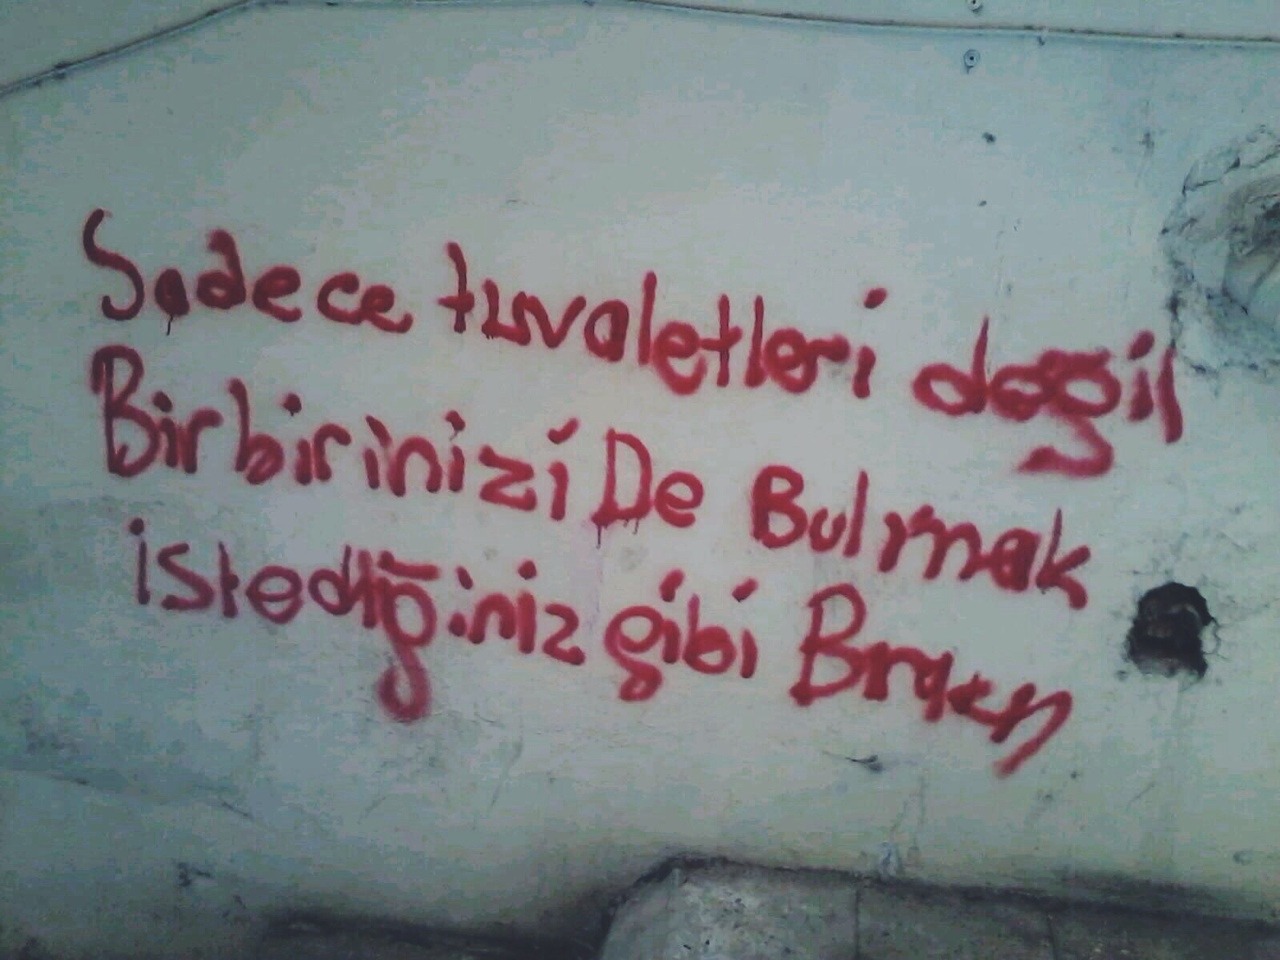 Sadece tuvaletleri değil
Birbirinizi De Bulmak
istediğiniz gibi